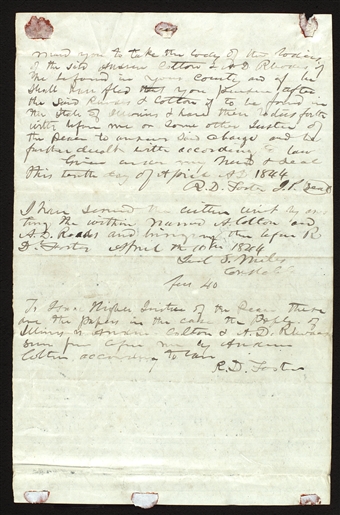 mand you to take the body of the bodies
of the said Andrew Colton & A D Rhodes if
he be found in your County and if he
shall have fled that you pursue after
the said Rhodes & Colton if to be found in
the State of Illinois & have their bodies forth
with before me or some other Justice of
the peace to answer said charge and be
further dealt with according to law
Given under my hand & seal
this tenth day of April AD 1844
R.D. Foster J P Seal
I have served the within writ by
the within named A Colton and
A.D. Roads and bringing them before R
D. Foster April the 10th 1844
S. Miles
Constable
fees 40
To Isaac Higbee Justice of the Peace these
are the papers in the case the People of
Illinois vs Andrew Colton & A.D. Rhodes
before me by Andrew
Colton according to law
R.D. Foster